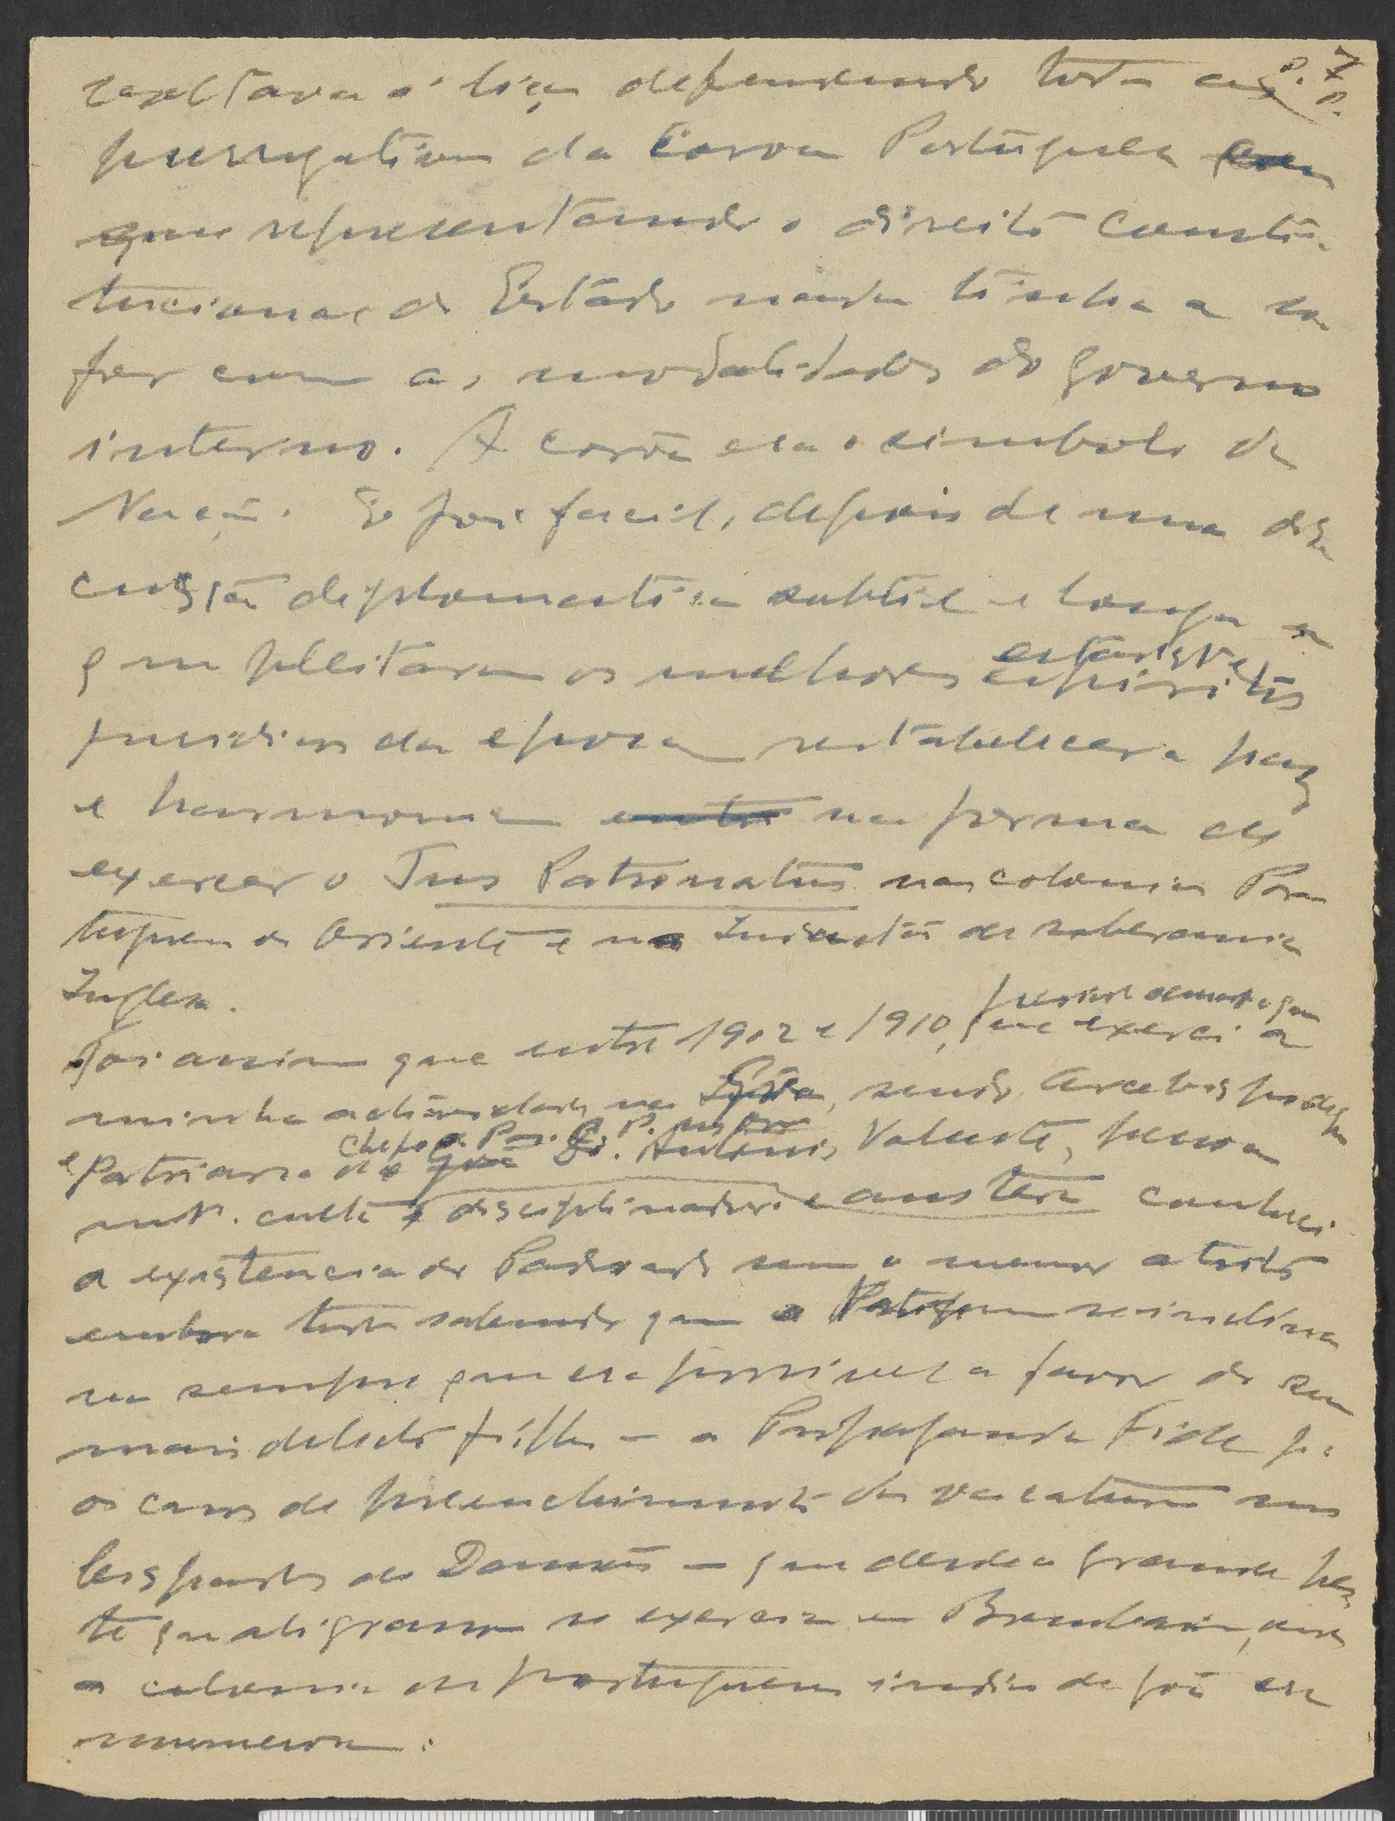 7
saltava á liça defendendo todas as
prerrogativas da Coroa Portuguesa
que representando o direito consti-
tucional do Estado nada tinha a
fazer com as modalidades do governo
interno. A corôa era o simbolo da
Nação. E foi facil, depois de uma dis
cussão diplomatica subtil e longa
que pleitaram os melhores espiritos estadistas
juridicos da epoca restabelecer a paz
e harmonia entre na forma de
exercer o Jus Patronatus nas colonias Por
tuguesas do Oriente e no Industão de soberania
Inglesa.
Foi assim que entre 1902 e 1910, que exerci a
minha actividade na India, sendo Arcebispo de Goa
e Patriarca das Antonio Valente, pessoa
mto. culta e disciplinadora e austera conheci
a existencia do Padroado sem o menor atrito
embora todos sabendo que o se inclina
va sempre que era possivel a favor do seu
mais dilecto filho - a Propaganda Fide pa
os casos de preenchimento das vacaturas nos
Bispados de Damão - que desde a grande pes
te que ali grassou se exercia em Bombaim, onde
a colonia de portugueses indios de Goa era
numerosa.